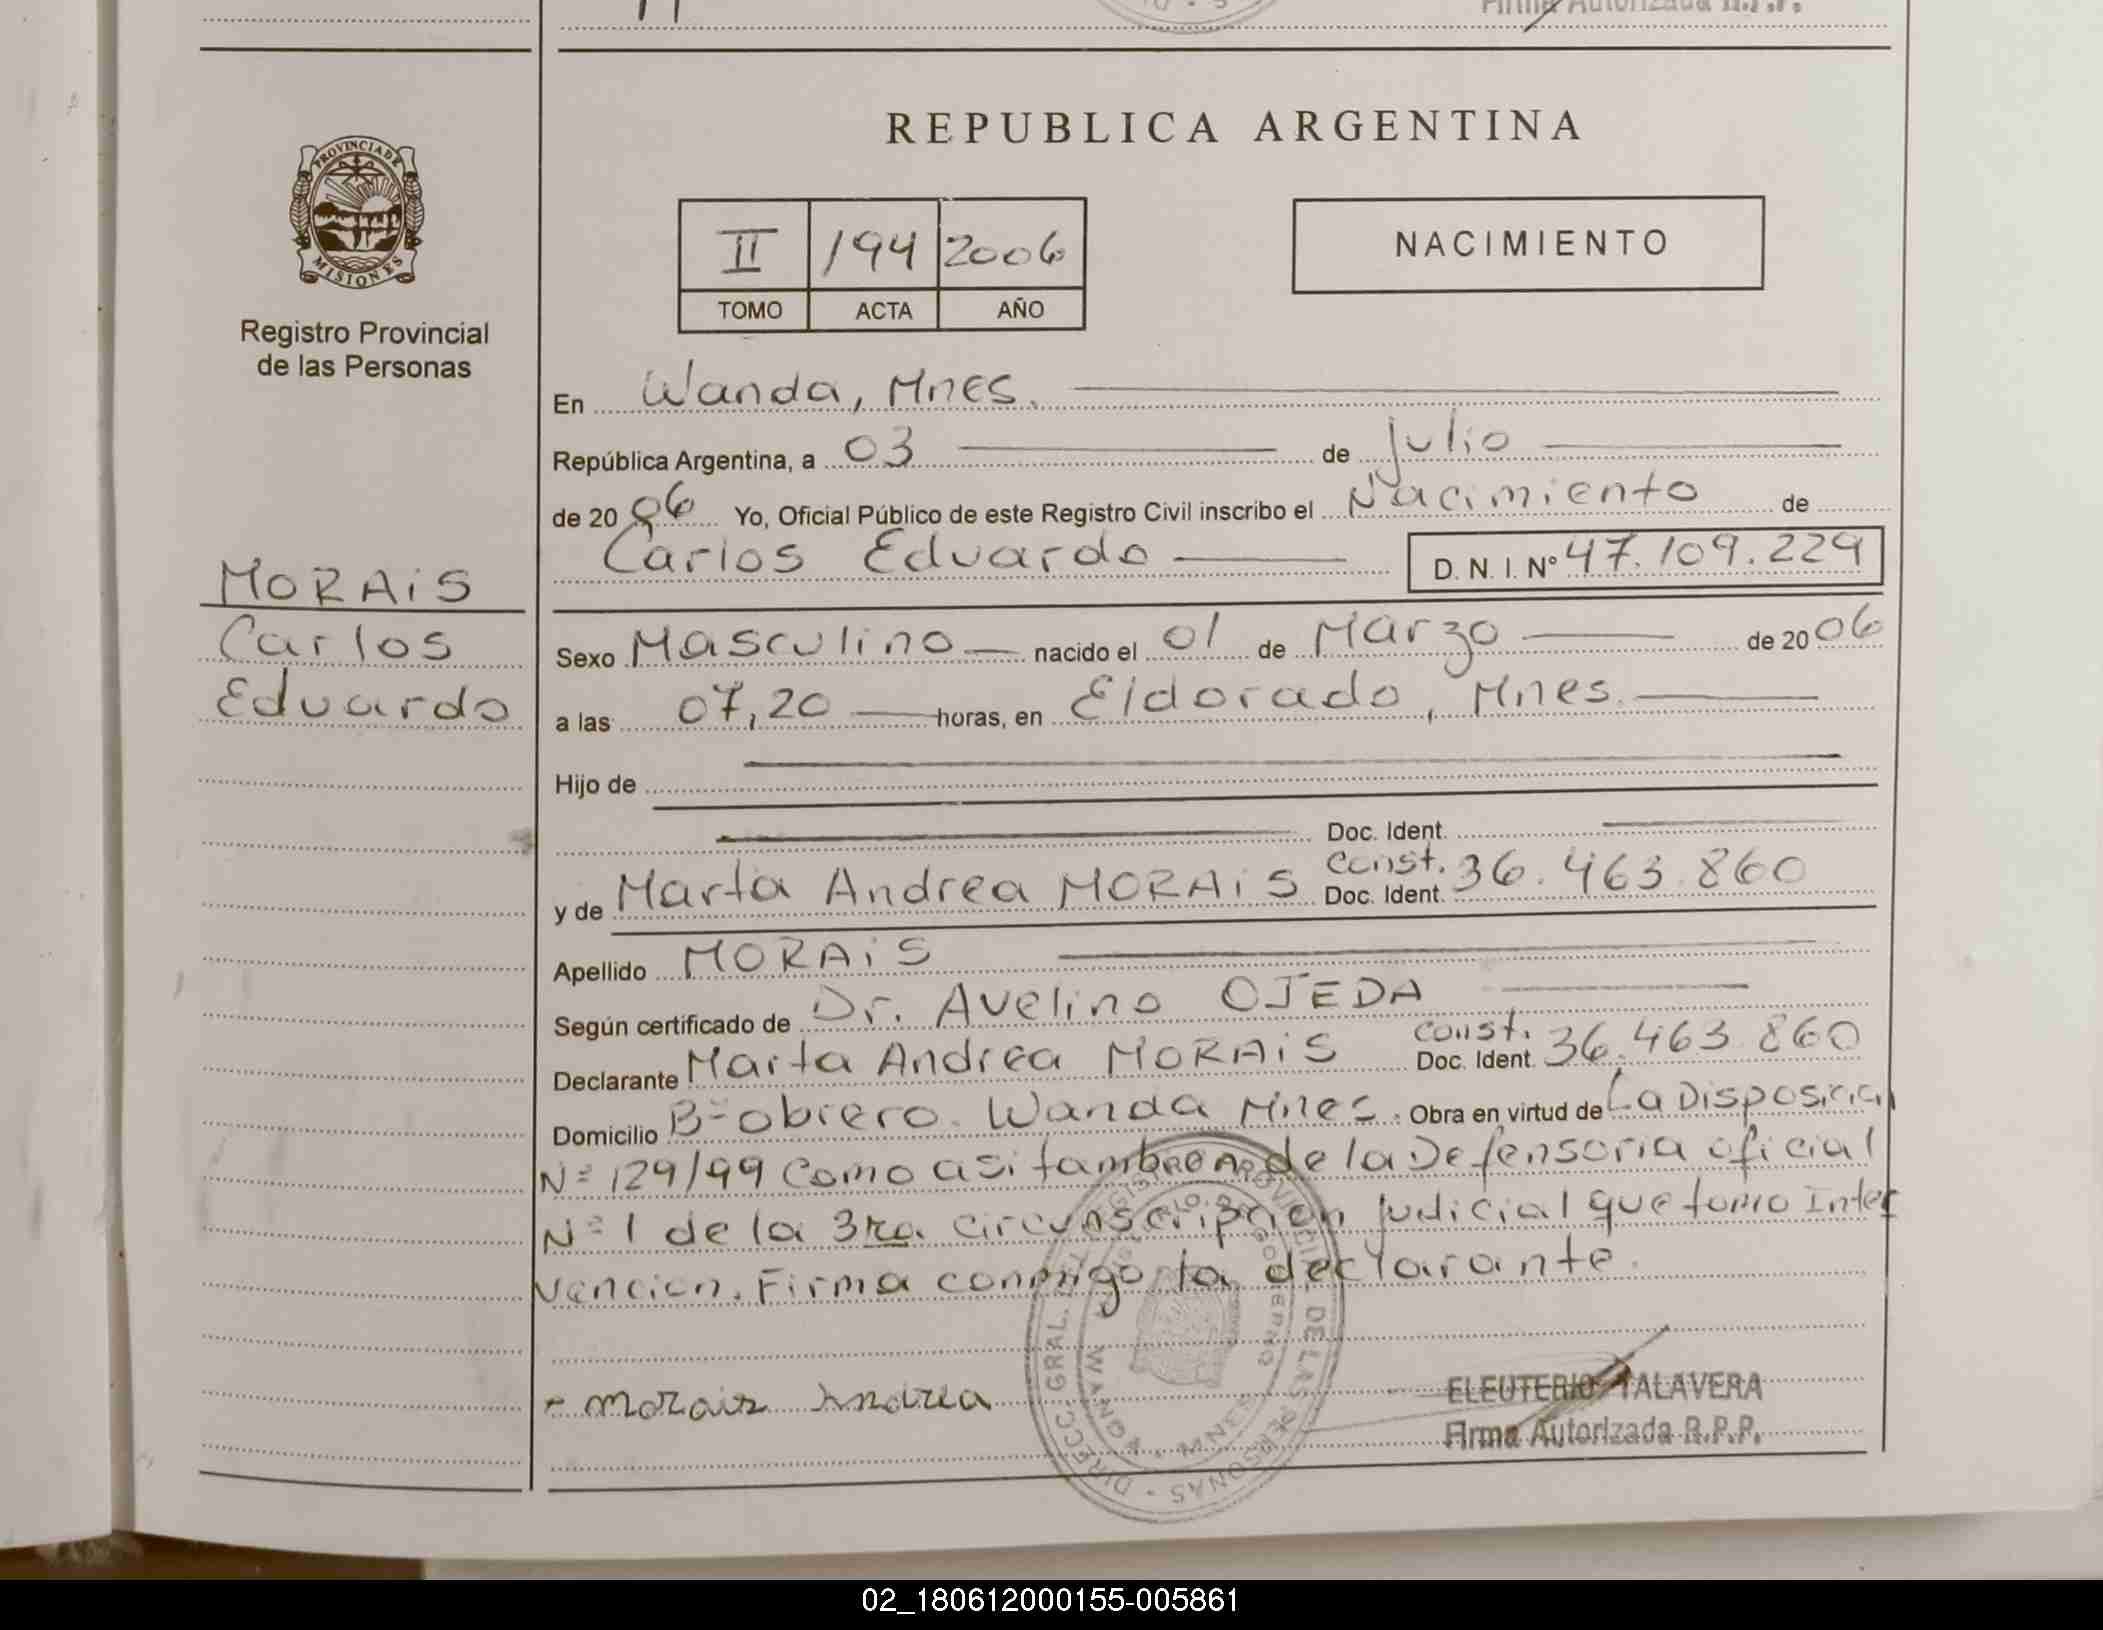 Firma Autorizada R.P.P.
REPUBLICA ARGENTINA
PROVINCIA DE
MISIONES
Registro Provincial
de las Personas
II 194 2006
TOMO ACTA AÑO
NACIMIENTO
En Wanda, Mnes.
República Argentina, a 03 de Julio
de 2006 Yo, Oficial Público de este Registro Civil inscribo el Nacimiento de
Carlos Eduardo D. N. I. Nº 47.109.229
MORAiS
Carlos
Eduardo
Sexo Masculino nacido el 01 de Marzo de 2006
a las 07,20 horas, en Eldorado, Mnes.
Hijo de
Doc. Ident.
y de Marta Andrea MORAiS Const. Doc. Ident. 36.463.860
Apellido MORAiS
Según certificado de Dr. Avelino OJEDA
Declarante Marta Andrea MORAiS Const. Doc. Ident. 36.463.860
Domicilio Bº obrero. Wanda Mnes. Obra en virtud de La Disposicion
Nº 129/99 Como asi tambien de la Defensoria oficial
Nº 1 de la 3ra. circunscripcion judicial que tomo Inter
vencion. Firma conmigo la declarante.
Morais Andrea
DIRECC. GRAL. DEL REGISTRO PROVINCIAL DE LAS PERSONAS
WANDA - MNES
ELEUTERIO TALAVERA
Firma Autorizada R.P.P.
02_180612000155-005861